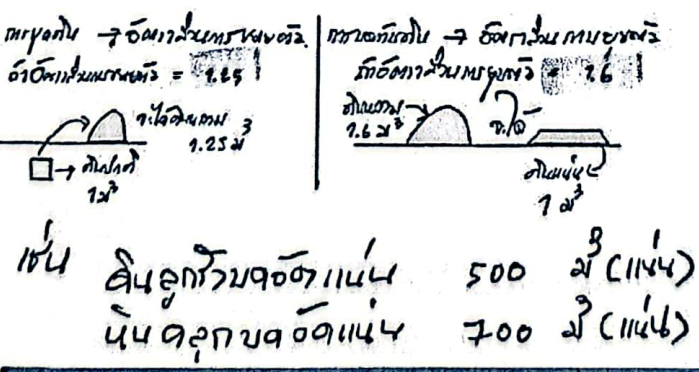 การขุดดิน → อัตราส่วนการขยายตัว
ถ้าอัตราส่วนการขยายตัว = 1.25
จะได้ดินหลวม
1.25 ม³
→ ดินปกติ
1 ม³
การบดทับดิน → อัตราส่วนการยุบตัว
ถ้าอัตราส่วนการยุบตัว = 1.6
ดินหลวม
1.6 ม³
จะได้
ดินแน่น
1 ม³
เช่น ดินลูกรังบดอัดแน่น 500 ม³ (แน่น)
หินคลุกบดอัดแน่น 700 ม³ (แน่น)